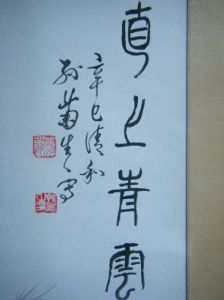 直上青雲
辛巳清和
孙菊生写